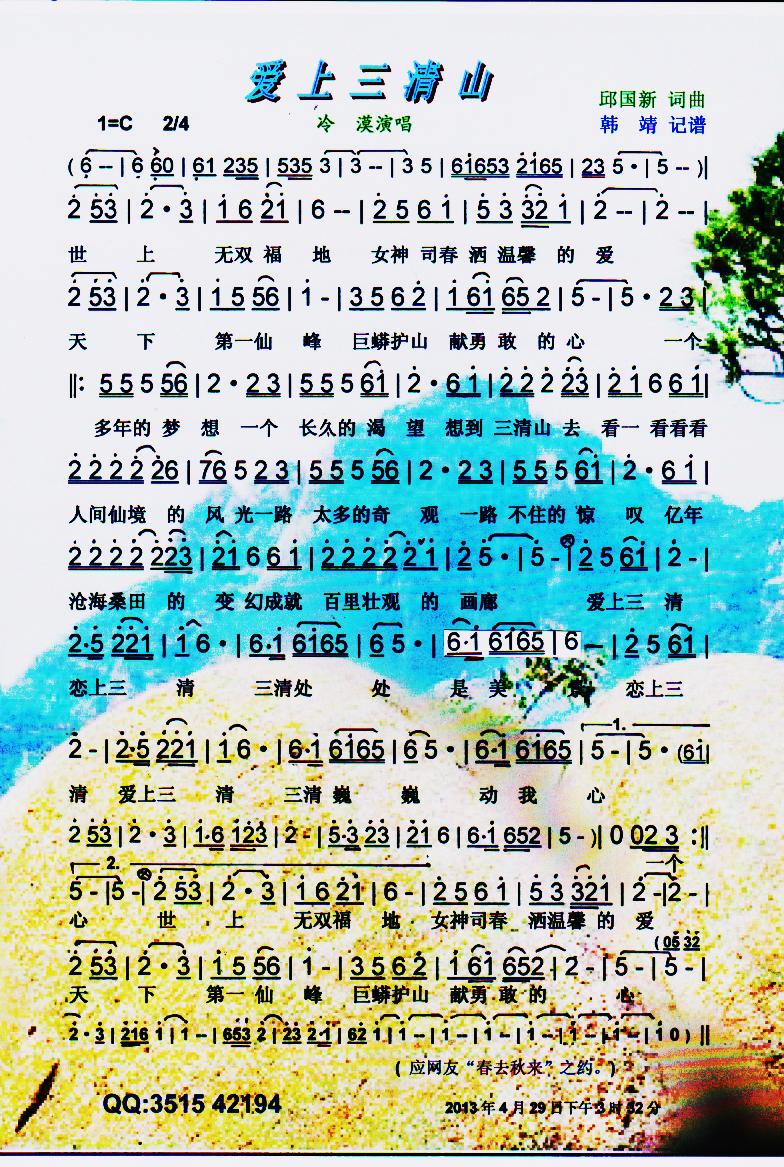 爱上三清山
邱国新 词曲
1=C 2/4 冷 漠演唱 韩 靖 记谱
(6 -- | 6 60 | 61 235 | 535 3 | 3 -- | 3 5 | 61653 2165 | 23 5 · | 5 -- )|
2 53 | 2 · 3 | 1 6 21 | 6 -- | 2 5 6 1 | 5 3 32 1 | 2 -- | 2 -- |
世 上 无双 福 地 女神 司春 洒 温馨 的 爱
2 53 | 2 · 3 | 1 5 56 | 1 - | 3 5 6 2 | 1 61 65 2 | 5 - | 5 · 2 3 |
天 下 第一仙 峰 巨蟒护山 献勇 敢 的 心 一个
‖: 5 5 5 56 | 2 · 2 3 | 5 5 5 61 | 2 · 6 1 | 2 2 2 23 | 2 1 6 6 1 |
多年的 梦 想 一个 长久的 渴 望 想到 三清山 去 看一 看看看
2 2 2 2 26 | 76 5 2 3 | 5 5 5 56 | 2 · 2 3 | 5 5 5 61 | 2 · 6 1 |
人间仙境 的 风 光一路 太多的奇 观 一路 不住的 惊 叹 亿年
2 2 2 2 223 | 21 6 6 1 | 2 2 2 2 2 1 | 2 5 · | 5 - | 2 5 61 | 2 - |
沧海桑田 的 变 幻成就 百里壮观 的 画廊 爱上三 清
2·5 221 | 1 6 · | 6·1 6165 | 6 5 · | 6·1 6165 | 6 — | 2 5 61 |
恋上三 清 三清处 处 是 美 恋上三
2 - | 2·5 221 | 1 6 · | 6·1 6165 | 6 5 · | 6·1 6165 | 5 - | 5 · (61 |
1.
清 爱上三 清 三清 巍 巍 动 我 心
2 53 | 2 · 3 | 1·6 123 | 2 - | 5·3 23 | 21 6 | 6·1 652 | 5 - )| 0 02 3 :‖
2. 一个
5 - | 5 - | 2 53 | 2 · 3 | 1 6 21 | 6 - | 2 5 6 1 | 5 3 321 | 2 - | 2 - |
心 世 上 无双福 地 女神司春 洒温馨 的 爱
(05 32
2 53 | 2 · 3 | 1 5 56 | 1 - | 3 5 6 2 | 1 61 652 | 2 - | 5 - | 5 - |
天 下 第一 仙 峰 巨蟒护山 献勇 敢 的 心
2 · 3 | 216 1 | 1 -- | 653 2 | 23 2·1 | 62 1 | 1 -- | 1 -- | 1 -- | 1 -- | 1 -- | 1 0 ) ‖
( 应网友“春去秋来”之约。)
QQ:3515 42194 2013年4月29日下午3时32分